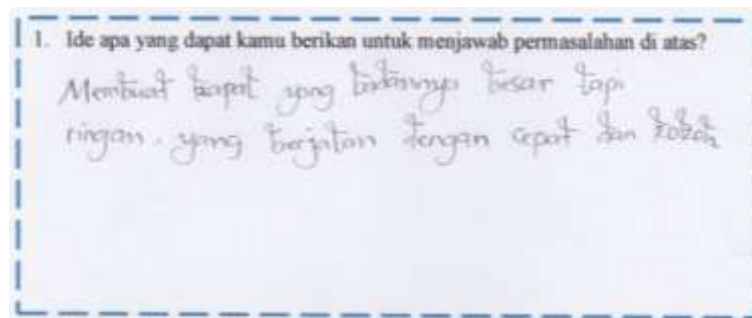 1. Ide apa yang dapat kamu berikan untuk menjawab permasalahan di atas?
Membuat kapal yang badannya besar tapi
ringan. yang berjalan dengan cepat dan kokoh